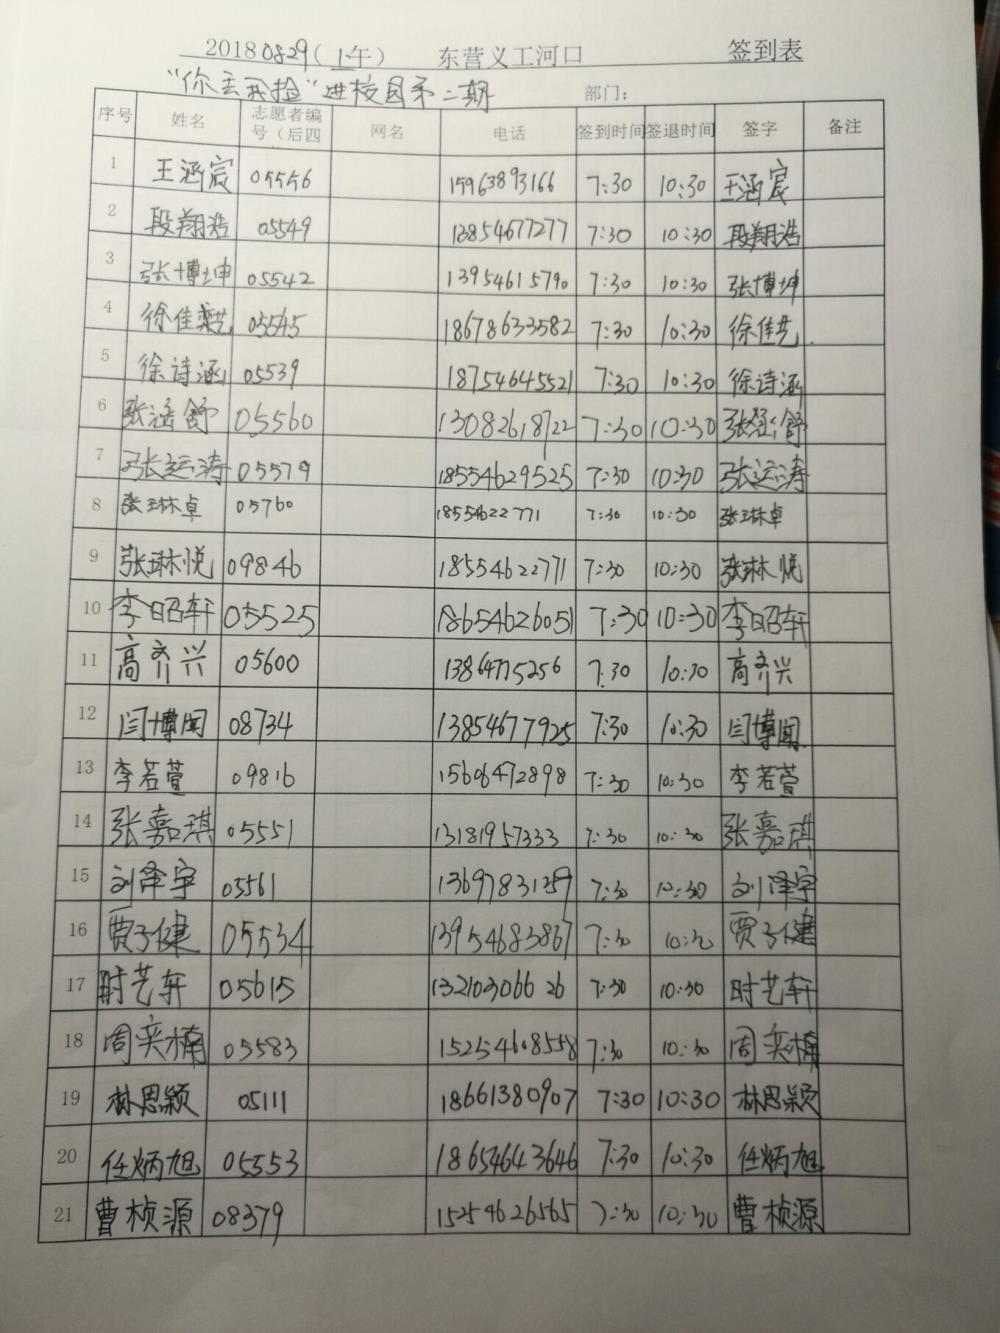 20180829（上午） 东营义工河口 签到表
“你丢我捡”进校园第二期 部门：
序号 姓名 志愿者编号（后四 网名 电话 签到时间 签退时间 签字 备注
1 王涵宸 05556 15963893166 7:30 10:30 王涵宸
2 段翔浩 05549 13854677277 7:30 10:30 段翔浩
3 张博坤 05542 13954615790 7:30 10:30 张博坤
4 徐佳艺 05545 18678633582 7:30 10:30 徐佳艺
5 徐诗涵 05539 18754645521 7:30 10:30 徐诗涵
6 张涵舒 05560 13082618722 7:30 10:30 张涵舒
7 张运涛 05579 18554629525 7:30 10:30 张运涛
8 张琳卓 05760 18554622771 7:30 10:30 张琳卓
9 张琳悦 09846 18554622771 7:30 10:30 张琳悦
10 李昭轩 05525 18654626051 7:30 10:30 李昭轩
11 高齐兴 05600 13864775256 7:30 10:30 高齐兴
12 闫博闻 08734 13854677925 7:30 10:30 闫博闻
13 李若萱 09816 15606472898 7:30 10:30 李若萱
14 张嘉琪 05551 13181957333 7:30 10:30 张嘉琪
15 刘泽宇 05561 13697831259 7:30 10:30 刘泽宇
16 贾子健 05534 13954683867 7:30 10:30 贾子健
17 时艺轩 05615 13210306626 7:30 10:30 时艺轩
18 周奕楠 05583 15254608558 7:30 10:30 周奕楠
19 林思颖 05111 18661380907 7:30 10:30 林思颖
20 任炳旭 05553 18654643646 7:30 10:30 任炳旭
21 曹桢源 08379 15254626565 7:30 10:30 曹桢源